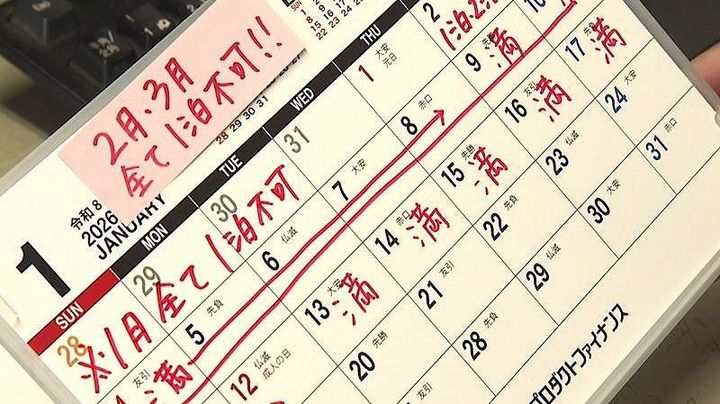 2月、3月
全て1泊不可!!
令和8
2026
JANUARY
1
SUN
MON
TUE
WED
THU
28
29
30
31
1
大安
元日
2
※1月全て1泊不可
5
先負
6
仏滅
7
大安
8
赤口
9
満
10
満
12
仏滅
成人の日
13
大安
満
14
赤口
満
15
先勝
満
16
友引
満
17
先負
満
20
先勝
21
友引
22
先負
23
仏滅
24
大安
28
先負
29
仏滅
30
大安
31
赤口
プロダクトファイナンス